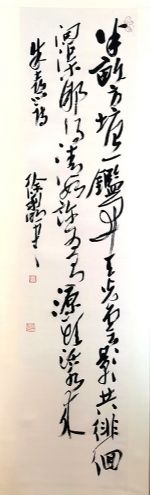 半畝方塘一鑑開天光雲影共徘徊
問渠那得清如許為有源頭活水來
朱熹詩
徐利明書